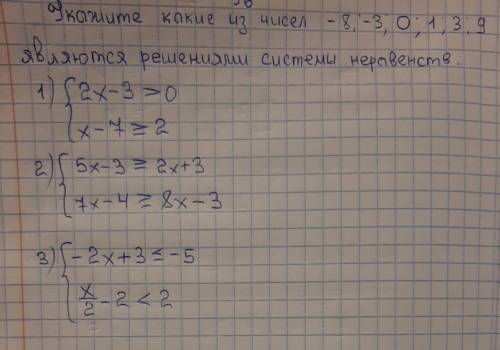 Укажите какие из чисел -8; -3; 0; 1; 3; 9
являются решениями системы неравенств.
1) { 2x-3 > 0
x-7 ≥ 2
2) { 5x-3 ≥ 2x+3
7x-4 ≥ 8x-3
3) { -2x+3 ≤ -5
x/2 - 2 < 2